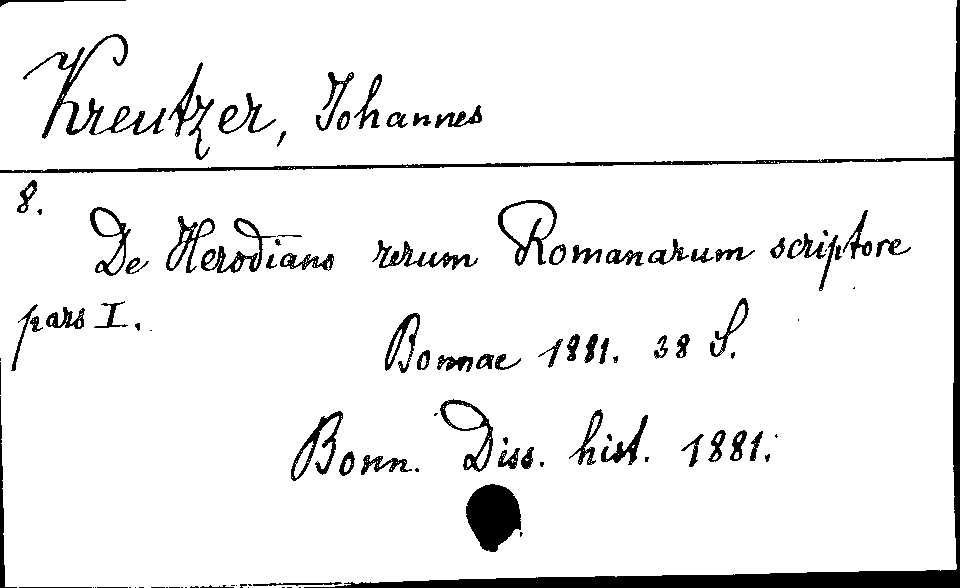 Kreutzer, Johannes
8.
De Herodiano rerum Romanarum scriptore
pars I.
Bonnae 1881. 38 S.
Bonn. Diss. hist. 1881.